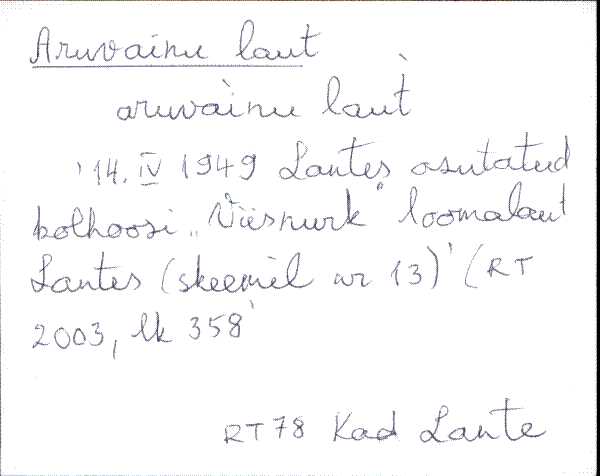 Aruvainu laut
aruvàinu laut̀
'14. IV 1949 Lantes asutatud
kolhoosi „Viisnurk" loomalaut
Lantes (skeemil nr 13)' (RT
2003, lk 358'
RT78 Kad Lante